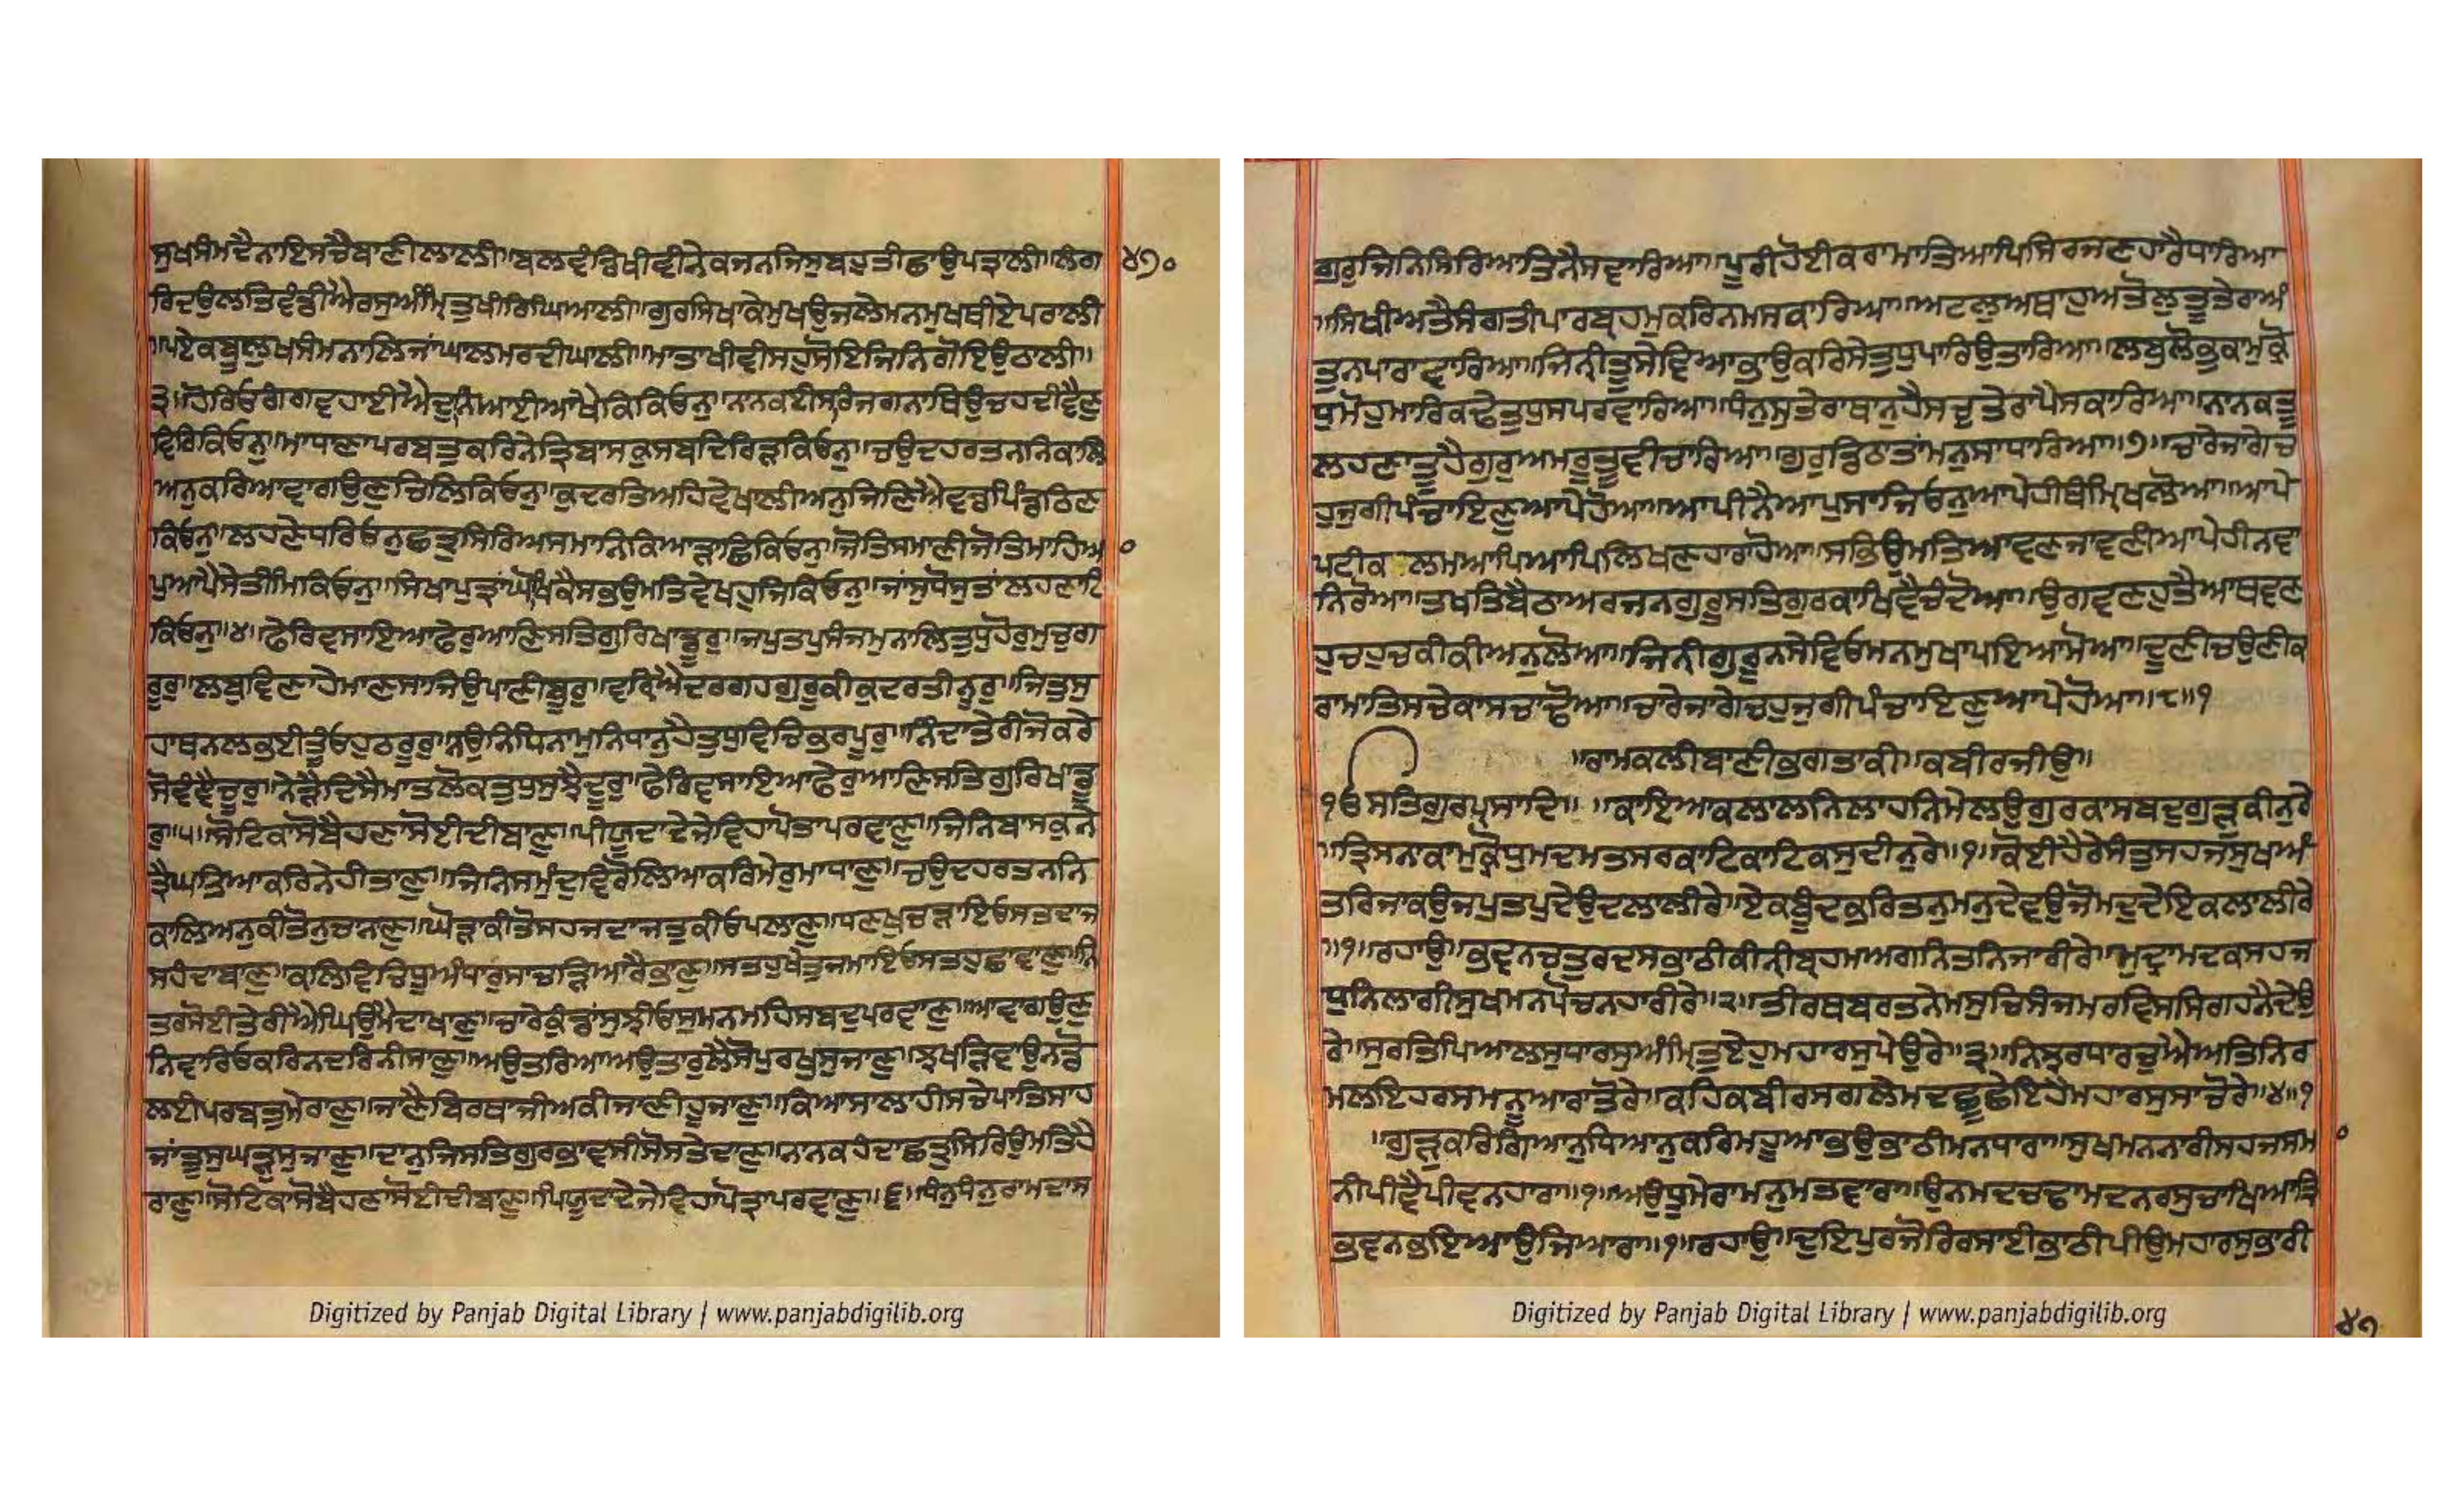 ਸੁਖਸੰਮਦੈਨਾਇਸਚੈਬਾਣੀਲਾਲੀ॥ਬਲਵੰਡਿਖੀਵੀਨੇਕਜਨਜਿਸੁਬਹੁਤੀਛਾਉਪਤ੍ਰਾਲੀ॥ਲੰਗ ੪੭੦
ਰਿਦਉਲਤਿਵੰਡੀਐਰਸੁਅੰਮ੍ਰਿਤੁਖੀਰਿਘਿਆਲੀ॥ਗੁਰਸਿਖਾਕੇਮੁਖਉਜਲੇਮਨਮੁਖਥੀਏਪਰਾਲੀ
॥ਪਏਕਬੂਲੁਖਸੰਮਨਾਲਿਜਾਂਘਾਲਮਰਦੀਘਾਲੀ॥ਮਾਤਾਖੀਵੀਸਹੁਸੋਇਜਿਨਿਗੋਇਉਠਾਲੀ॥
੩॥ਹੋਰਿਂਓਗੰਗਵਹਾਈਐਦੁਨਿਆਈਆਖੈਕਿਕਿਓਨੁ॥ਨਾਨਕਈਸਰਿਜਗਨਾਥਿਉਚਹਦੀਵੈਣੁ
ਵਿਰਿਕਿਓਨੁ॥ਮਾਧਾਣਾਪਰਬਤੁਕਰਿਨੇਤ੍ਰਿਬਾਸਕੁਸਬਦਿਰਿੜਕਿਓਨੁ॥ਚਉਦਹਰਤਨਨਿਕਾਲਿ
ਅਨੁਕਰਿਆਵਾਗਉਣੁਚਿਲਿਕਿਓਨੁ॥ਕੁਦਰਤਿਅਹਿਵੇਖਾਲੀਅਨੁਜਿਣਿਐਵਡਪਿੰਡਠਿਣ
ਕਿਓਨੁ॥ਲਹਣੇਧਰਿਓਨੁਛਤ੍ਰੁਸਿਰਿਅਸਮਾਨਿਕਿਆੜਾਛਿਕਿਓਨੁ॥ਜੋਤਿਸਮਾਣੀਜੋਤਿਮਾਹਿਆ
ਪੁਆਪੈਸੇਤੀਮਿਕਿਓਨੁ॥ਸਿਖਾਪੁਤ੍ਰਾਂਘੋਖਿਕੈਸਭਉਮਤਿਵੇਖਹੁਜਿਕਿਓਨੁ॥ਜਾਂਸੁਧੋਸੁਤਾਂਲਹਣਾਟਿ
ਕਿਓਨੁ॥੪॥ਫੇਰਿਵਸਾਇਆਫੇਰੁਆਣਿਸਤਿਗੁਰਿਖਾਡੂਰੁ॥ਜਪੁਤਪੁਸੰਜਮੁਨਾਲਿਤੁਧੁਹੋਰੁਮੁਚੁਗ
ਰੂਰੁ॥ਲਬੁਵਿਣਾਹੇਮਾਣਸਾਜਿਉਪਾਣੀਬੂਰੁ॥ਵਰ੍ਹਿਐਦਰਗਹਗੁਰੂਕੀਕੁਦਰਤੀਨੂਰੁ॥ਜਿਤੁਸੁ
ਹਾਥਨਲਭਈਤੂੰਓਹੁਠਰੂਰੁ॥ਨਉਨਿਧਿਨਾਮੁਨਿਧਾਨੁਹੈਤੁਧੁਵਿਚਿਭਰਪੂਰੁ॥ਨਿੰਦਾਤੇਰੀਜੋਕਰੇ
ਸੋਵੰਞੈਚੂਰੁ॥ਨੇੜੈਦਿਸੈਮਾਤਲੋਕਤੁਧੁਸੁਝੈਦੂਰੁ॥ਫੇਰਿਵਸਾਇਆਫੇਰੁਆਣਿਸਤਿਗੁਰਿਖਾਡੂ
ਰੁ॥੫॥ਸੋਟਿਕਾਸੋਬੈਹਣਾਸੋਈਦੀਬਾਣੁ॥ਪੀਯੂਦਾਦੇਜੇਵਿਹਾਪੋਤਾਪਰਵਾਣੁ॥ਜਿਨਿਬਾਸਕੁਨੇ
ਤ੍ਰੈਘਤਿਆਕਰਿਨੇਹੀਤਾਣੁ॥ਜਿਨਿਸਮੁੰਦੁਵਿਰੋਲਿਆਕਰਿਮੇਰੁਮਾਧਾਣੁ॥ਚਉਦਹਰਤਨਨਿ
ਕਾਲਿਅਨੁਕੀਤੋਨੁਚਾਨਣੁ॥ਘੋੜਾਕੀਤੋਸਹਜਦਾਜਤੁਕੀਓਪਲਾਣੁ॥ਧਣਖੁਚੜਾਇਓਸਤਦਾਜ
ਸਹੰਦਾਬਾਣੁ॥ਕਲਿਵਿਚਿਧੂਅੰਧਾਰੁਸਾਚੜਿਆਰੈਭਾਣੁ॥ਸਤਹੁਖੇਤੁਜਮਾਇਓਸਤਹੁਛਾਵਾਣੁ॥ਨਿ
ਤਰਸੋਈਤੇਰੀਐਘਿਉਮੈਦਾਖਾਣੁ॥ਚਾਰੇਕੁੰਡਾਂਸੁਝੀਓਸੁਮਨਮਹਿਸਬਦੁਪਰਵਾਣੁ॥ਆਵਾਗਉਣੁ
ਨਿਵਾਰਿਓਕਰਿਨਦਰਿਨੀਸਾਣੁ॥ਅਉਤਰਿਆਅਉਤਾਰੁਲੈਸੋਪੁਰਖੁਸੁਜਾਣੁ॥ਝਖੜਿਵਾਉਨਡੋ
ਲਈਪਰਬਤੁਮੇਰਾਣੁ॥ਜਾਣੈਬਿਰਥਾਜੀਅਕੀਜਾਣੀਹੂਜਾਣੁ॥ਕਿਆਸਾਲਾਹੀਸਚੇਪਾਤਿਸਾਹ
ਜਾਂਤੂਸੁਘੜੁਸੁਜਾਣੁ॥ਦਾਨੁਜਿਸਤਿਗੁਰਭਾਵਸੀਸੋਸਤੇਦਾਣੁ॥ਨਾਨਕਹੰਦਾਛਤ੍ਰੁਸਿਰਿਉਮਤਿਹੈ
ਰਾਣੁ॥ਸੋਟਿਕਾਸੋਬੈਹਣਾਸੋਈਦੀਬਾਣੁ॥ਪਿਯੂਦਾਦੇਜੇਵਿਹਾਪੋਤ੍ਰਾਪਰਵਾਣੁ॥੬॥ਧੰਨੁਧੰਨੁਰਾਮਦਾਸ
ਗੁਰੁਜਿਨਿਸਿਰਿਆਤਿਨੈਸਵਾਰਿਆ॥ਪੂਰੀਹੋਈਕਰਾਮਾਤਿਆਪਿਸਿਰਜਣਹਾਰੈਧਾਰਿਆ
॥ਸਿਖੀਅਤੈਸੰਗਤੀਪਾਰਬ੍ਰਹਮੁਕਰਿਨਮਸਕਾਰਿਆ॥ਅਟਲੁਅਥਾਹੁਅਤੋਲੁਤੂਤੇਰਾਅੰ
ਤੁਨਪਾਰਾਵਾਰਿਆ॥ਜਿਨੀਤੂਸੇਵਿਆਭਾਉਕਰਿਸੇਤੁਧੁਪਾਰਿਉਤਾਰਿਆ॥ਲਬੁਲੋਭੁਕਾਮੁਕ੍ਰੋ
ਧੁਮੋਹੁਮਾਰਿਕਢੇਤੁਧੁਸਪਰਵਾਰਿਆ॥ਧੰਨੁਸੁਤੇਰਾਥਾਨੁਹੈਸਚੁਤੇਰਾਪੈਸਕਾਰਿਆ॥ਨਾਨਕਤੂ
ਲਹਣਾਤੂਹੈਗੁਰੁਅਮਰੁਤੂਵੀਚਾਰਿਆ॥ਗੁਰੁਡਿਠਾਤਾਂਮਨੁਸਾਧਾਰਿਆ॥੭॥ਚਾਰੇਜਾਗੇਚ
ਹੁਜੁਗੀਪੰਚਾਇਣੁਆਪੇਹੋਆ॥ਆਪੀਨੈਆਪੁਸਾਜਿਓਨੁਆਪੇਹੀਥੰਮਿਖਲੋਆ॥ਆਪੇ
ਪਟੀਕਲਮਆਪਿਆਪਿਲਿਖਣਹਾਰਾਹੋਆ॥ਸਭਿਉਮਤਿਆਵਣਜਾਵਣੀਆਪੇਹੀਨਵਾ
ਨਿਰੋਆ॥ਤਖਤਿਬੈਠਾਅਰਜਨਗੁਰੂਸਤਿਗੁਰਕਾਖਿਵੈਚੰਦੋਆ॥ਉਗਵਣਹੁਤੈਆਥਵਣ
ਹੁਚਹੁਚਕੀਕੀਅਨੁਲੋਆ॥ਜਿਨੀਗੁਰੂਨਸੇਵਿਓਮਨਮੁਖਾਪਇਆਮੋਆ॥ਦੂਣੀਚਉਣੀਕ
ਰਾਮਾਤਿਸਚੇਕਾਸਚਾਢੋਆ॥ਚਾਰੇਜਾਗੇਚਹੁਜੁਗੀਪੰਚਾਇਣੁਆਪੇਹੋਆ॥੮॥੧
॥ਰਾਮਕਲੀਬਾਣੀਭਗਤਾਕੀ॥ਕਬੀਰਜੀਉ॥
ੴਸਤਿਗੁਰਪ੍ਰਸਾਦਿ॥ ॥ਕਾਇਆਕਲਾਲਨਿਲਾਹਨਿਮੇਲਉਗੁਰਕਾਸਬਦੁਗੁੜੁਕੀਨੁਰੇ
॥ਤ੍ਰਿਸਨਾਕਾਮੁਕ੍ਰੋਧੁਮਦਮਤਸਰਕਾਟਿਕਾਟਿਕਸੁਦੀਨੁਰੇ॥੧॥ਕੋਈਹੈਰੇਸੰਤੁਸਹਜਸੁਖਅੰ
ਤਰਿਜਾਕਉਜਪੁਤਪੁਦੇਉਦਲਾਲੀਰੇ॥ਏਕਬੂੰਦਭਰਿਤਨੁਮਨੁਦੇਵਉਜੋਮਦੁਦੇਇਕਲਾਲੀਰੇ
॥੧॥ਰਹਾਉ॥ਭਵਨਚਤੁਰਦਸਭਾਠੀਕੀਨੀਬ੍ਰਹਮਅਗਨਿਤਨਿਜਾਰੀਰੇ॥ਮੁਦ੍ਰਾਮਦਕਸਹਜ
ਧੁਨਿਲਾਗੀਸੁਖਮਨਪੋਚਨਹਾਰੀਰੇ॥੨॥ਤੀਰਥਬਰਤਨੇਮਸੁਚਿਸੰਜਮਰਵਿਸਸਿਗਹਨੈਦੇਉ
ਰੇ॥ਸੁਰਤਿਪਿਆਲਸੁਧਾਰਸੁਅੰਮ੍ਰਿਤੁਏਹੁਮਹਾਰਸੁਪੇਉਰੇ॥੩॥ਨਿਝਰਧਾਰਚੁਐਅਤਿਨਿਰ
ਮਲਇਹਰਸਮਨੂਆਰਾਤੋਰੇ॥ਕਹਿਕਬੀਰਸਗਲੇਮਦਛੂਛੇਇਹੈਮਹਾਰਸੁਸਾਚੋਰੇ॥੪॥੧
॥ਗੁੜੁਕਰਿਗਿਆਨੁਧਿਆਨੁਕਰਿਮਹੂਆਭਉਭਾਠੀਮਨਧਾਰਾ॥ਸੁਖਮਨਨਾਰੀਸਹਜਸਮ
ਨੀਪੀਵੈਪੀਵਨਹਾਰਾ॥੧॥ਅਉਧੂਮੇਰਾਮਨੁਮਤਵਾਰਾ॥ਉਨਮਦਚਢਾਮਦਨਰਸੁਚਾਖਿਆਤ੍ਰਿ
ਭਵਨਭਇਆਉਜਿਆਰਾ॥੧॥ਰਹਾਉ॥ਦੁਇਪੁਰਜੋਰਿਰਸਾਈਭਾਠੀਪੀਉਮਹਾਰਸੁਭਾਰੀ
Digitized by Panjab Digital Library | www.panjabdigilib.org
Digitized by Panjab Digital Library | www.panjabdigilib.org